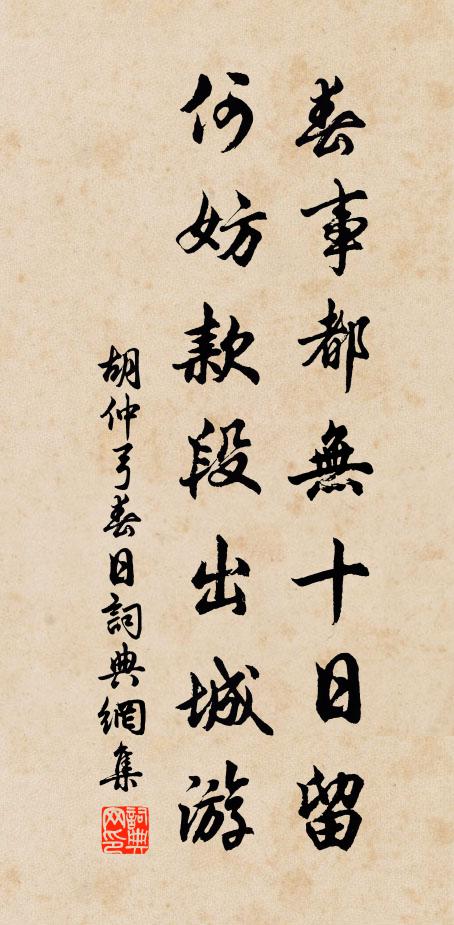 春事都無十日留
何妨款段出城游
胡仲弓春日詞典網集
詞典网印